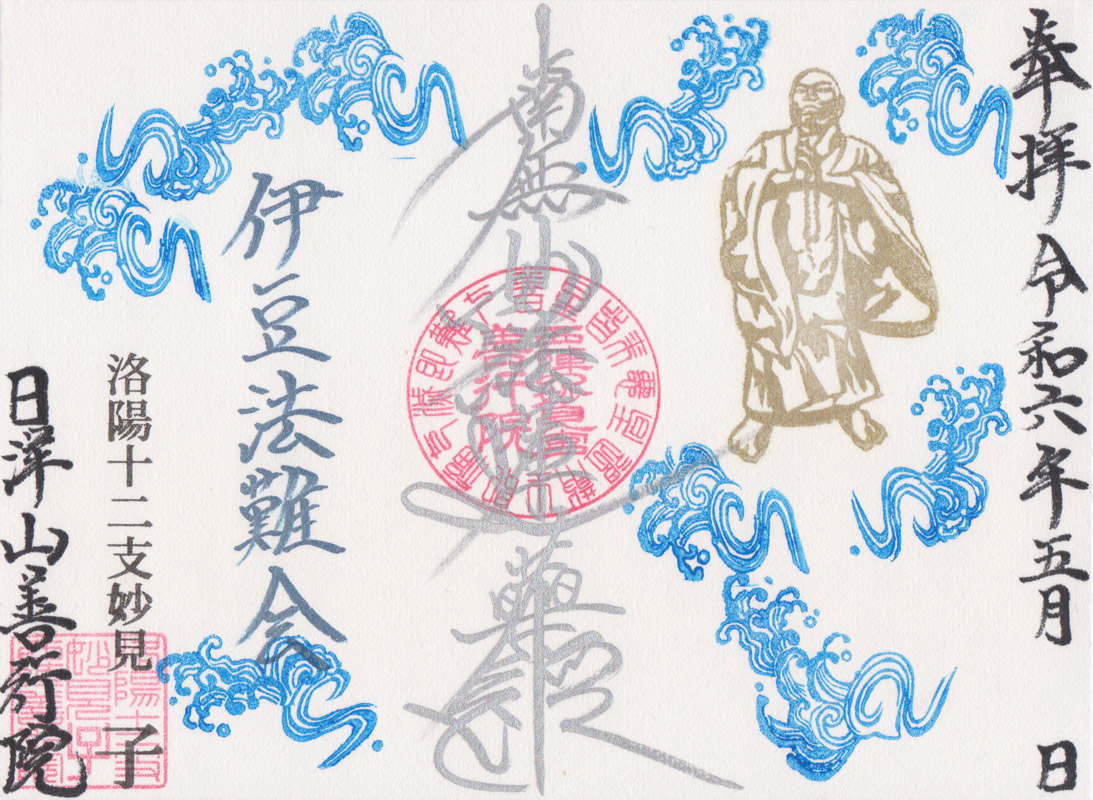 奉拝 令和六年五月 日
南無妙法蓮華経
伊豆法難会
洛陽十二支妙見 子
日洋山善行院